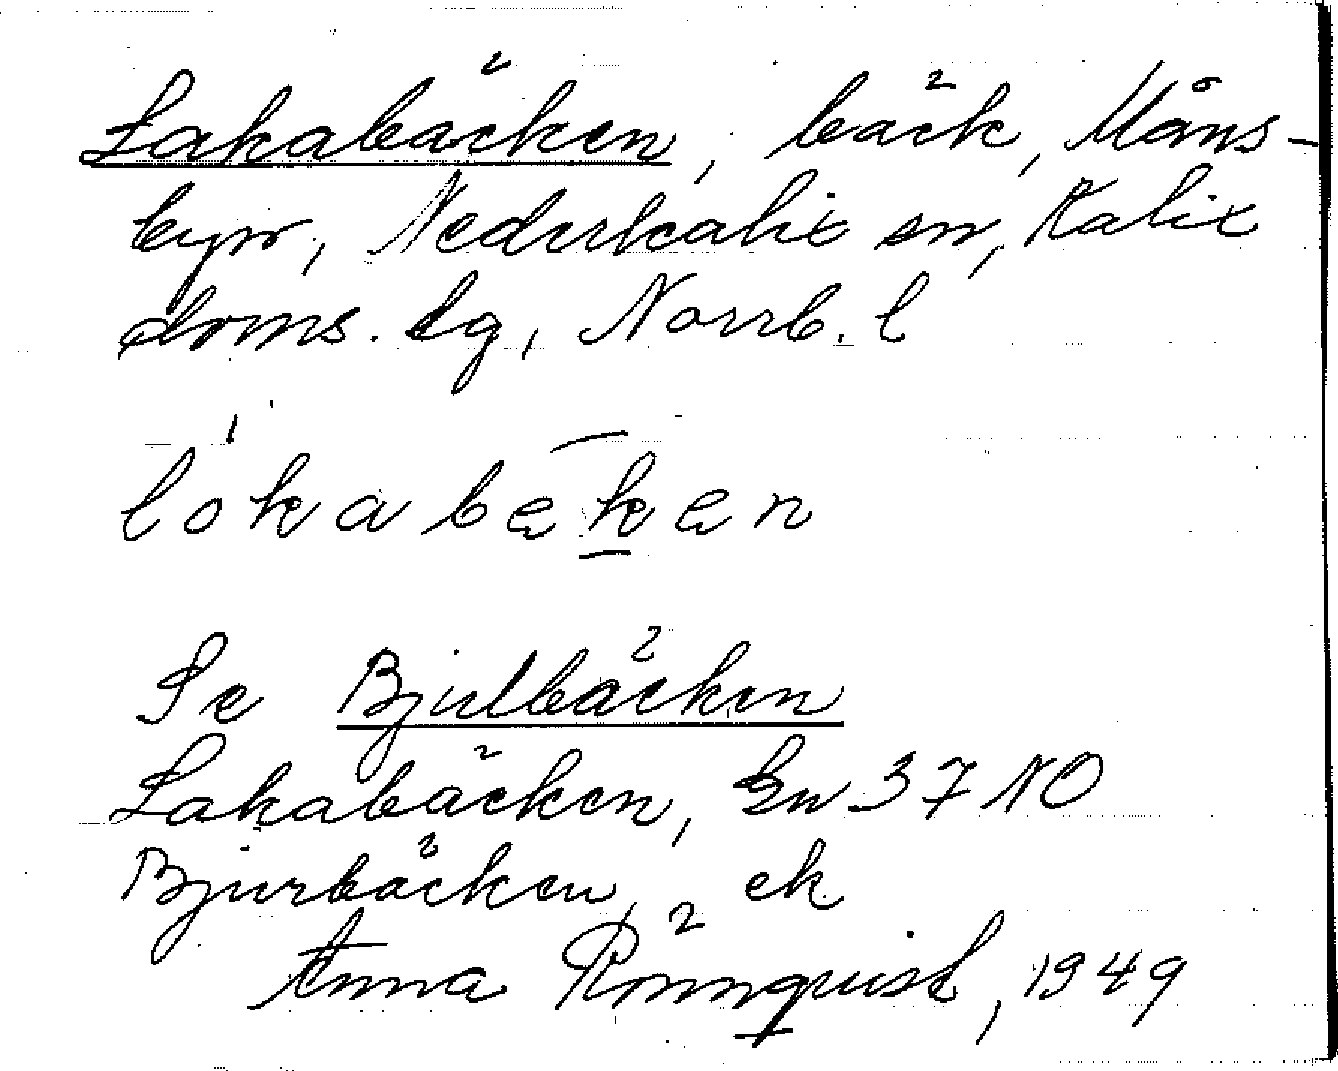 Lakabäcken, bäck, Måns-
byn, Nederkalix sn, Kalix
doms. lg, Norrb. l
lókabękęn
Se Bjulbäcken
Lakabäcken, Gn 37 NO
Bjurbäcken, ek
Anna Rönnquist, 1949